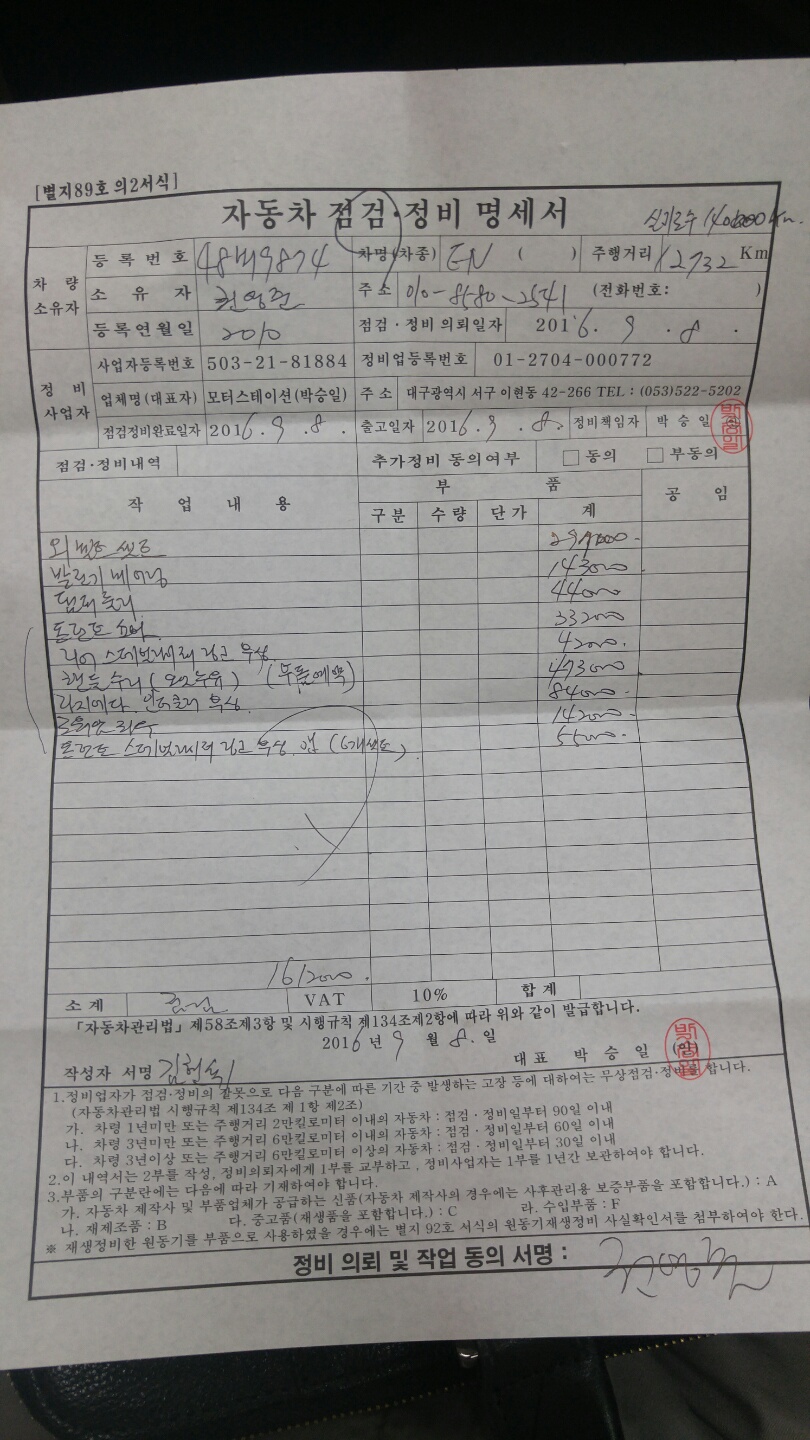 [별지89호의2서식]
자동차 점검·정비 명세서
차량 소유자
등록번호 차명(차종) EN ( ) 주행거리 12732 Km
소유자 주소 010-8580-2541 (전화번호: )
등록연월일 2010 점검·정비 의뢰일자 2016. 9. 8.
정비 사업자
사업자등록번호 503-21-81884 정비업등록번호 01-2704-000772
업체명(대표자) 모터스테이션(박승일) 주소 대구광역시 서구 이현동 42-266 TEL : (053)522-5202
점검정비완료일자 2016. 9. 8. 출고일자 2016. 9. 8. 정비책임자 박승일
점검·정비내역 추가정비 동의여부 □ 동의 □ 부동의
작업내용 부품 공임
구분 수량 단가 계
외 벨트 셋트
발란기 베어링 143000
44000
33200
42000.
핸들 수리 (오일누유) (부품예약) 473000
84000
142000
55000
1612000.
소계 VAT 10% 합계
「자동차관리법」제58조제3항 및 시행규칙 제134조제2항에 따라 위와 같이 발급합니다.
2016년 9월 8.일
작성자 서명 대표 박승일 (인)
1.정비업자가 점검·정비의 잘못으로 다음 구분에 따른 기간 중 발생하는 고장 등에 대하여는 무상점검·정비를 합니다.
(자동차관리법 시행규칙 제134조 제1항 제2조)
가. 차령 1년미만 또는 주행거리 2만킬로미터 이내의 자동차 : 점검·정비일부터 90일 이내
나. 차령 3년미만 또는 주행거리 6만킬로미터 이내의 자동차 : 점검·정비일부터 60일 이내
다. 차령 3년이상 또는 주행거리 6만킬로미터 이상의 자동차 : 점검·정비일부터 30일 이내
2.이 내역서는 2부를 작성, 정비의뢰자에게 1부를 교부하고, 정비사업자는 1부를 1년간 보관하여야 합니다.
3.부품의 구분란에는 다음에 따라 기재하여야 합니다.
가. 자동차 제작사 및 부품업체가 공급하는 신품(자동차 제작사의 경우에는 사후관리용 보증부품을 포함합니다.) : A
나. 재제조품 : B 다. 중고품(재생품을 포함합니다.) : C 라. 수입부품 : F
※ 재생정비한 원동기를 부품으로 사용하였을 경우에는 별지 92호 서식의 원동기재생정비 사실확인서를 첨부하여야 한다.
정비 의뢰 및 작업 동의 서명 :